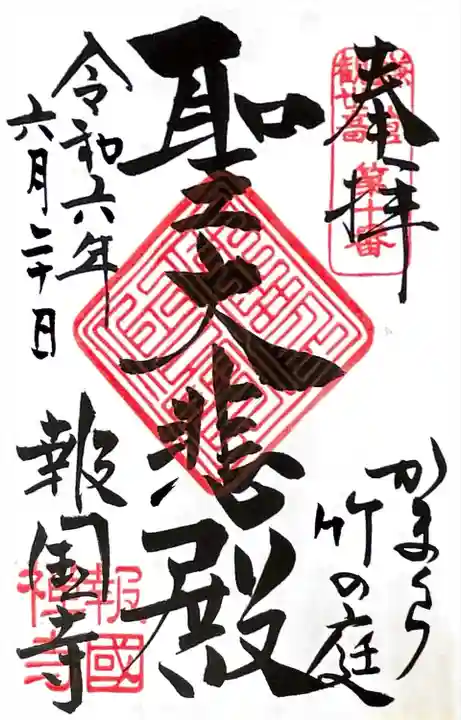 奉拝
觀世音
第十番
かまくら
竹の庭
聖大悲殿
令和六年
六月二十日
報国寺
報國
禅寺